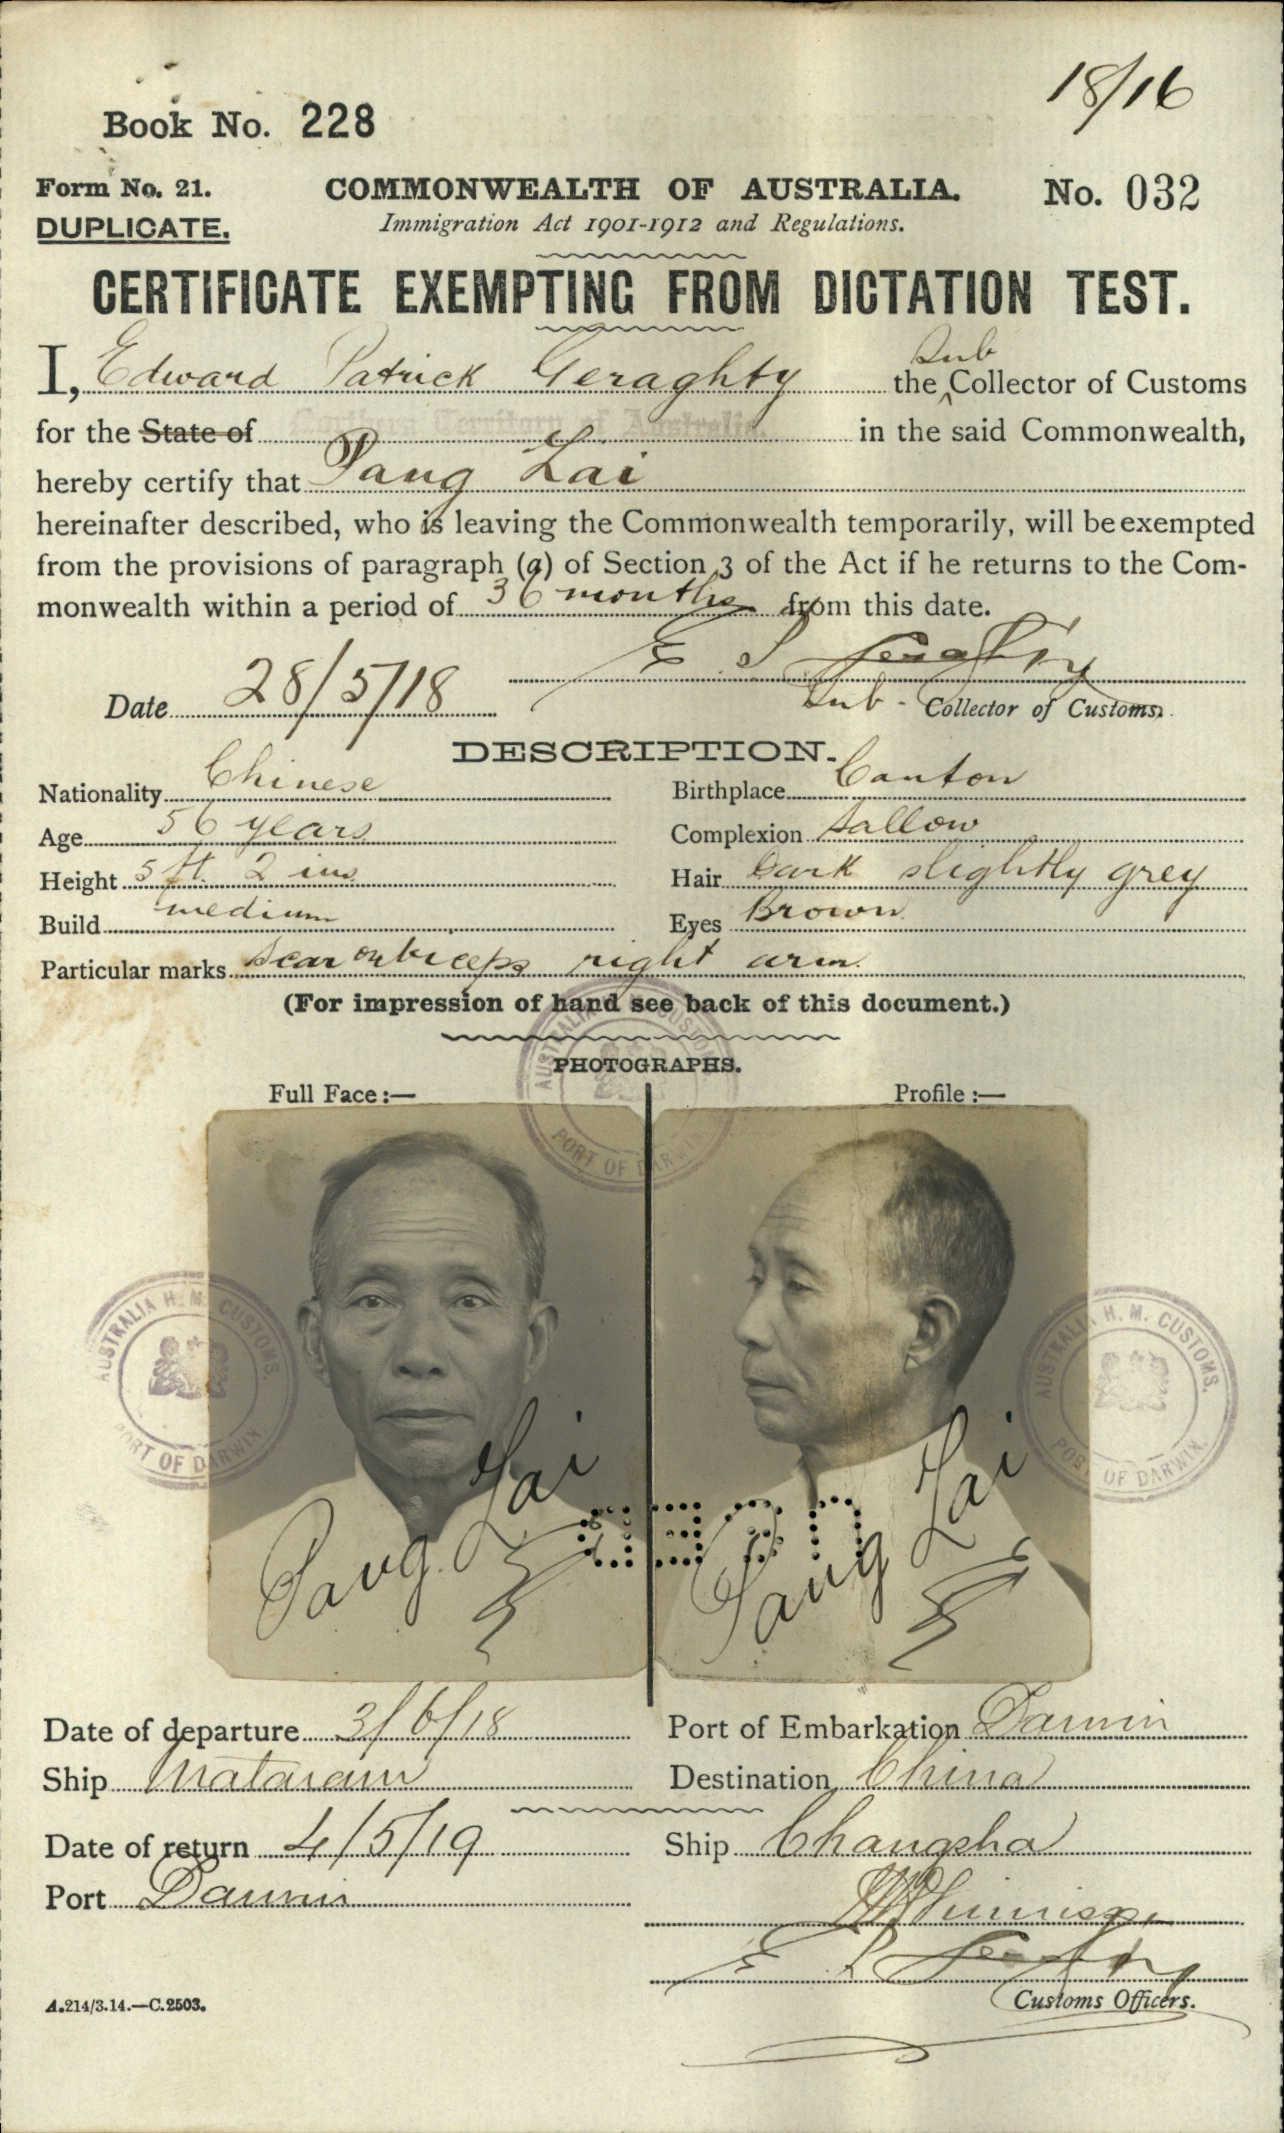 18/16
Book No. 228
Form No. 21. COMMONWEALTH OF AUSTRALIA. No. 032
DUPLICATE. Immigration Act 1901-1912 and Regulations.
CERTIFICATE EXEMPTING FROM DICTATION TEST.
I, Edward Patrick Geraghty the Sub Collector of Customs
for the State of Northern Territory of Australia. in the said Commonwealth,
hereby certify that Pang Lai
hereinafter described, who is leaving the Commonwealth temporarily, will be exempted
from the provisions of paragraph (a) of Section 3 of the Act if he returns to the Com-
monwealth within a period of 36 months from this date.
E P Geraghty
Date 28/5/18 Sub- Collector of Customs.
DESCRIPTION.
Nationality Chinese Birthplace Canton
Age 56 years Complexion Sallow
Height 5 ft. 2 ins Hair Dark slightly grey
Build medium Eyes Brown
Particular marks Scar on biceps right arm.
(For impression of hand see back of this document.)
PHOTOGRAPHS.
Full Face:— Profile:—
AUSTRALIA H. M. CUSTOMS. PORT OF DARWIN
AUSTRALIA H. M. CUSTOMS. PORT OF DARWIN
AUSTRALIA H. M. CUSTOMS. PORT OF DARWIN.
Pang Lai Pang Lai
Date of departure 3/6/18 Port of Embarkation Darwin
Ship Mataram Destination China
Date of return 4/5/19 Ship Changsha
Port Darwin
E P Geraghty
Customs Officers.
A.214/3.14.—C.2503.